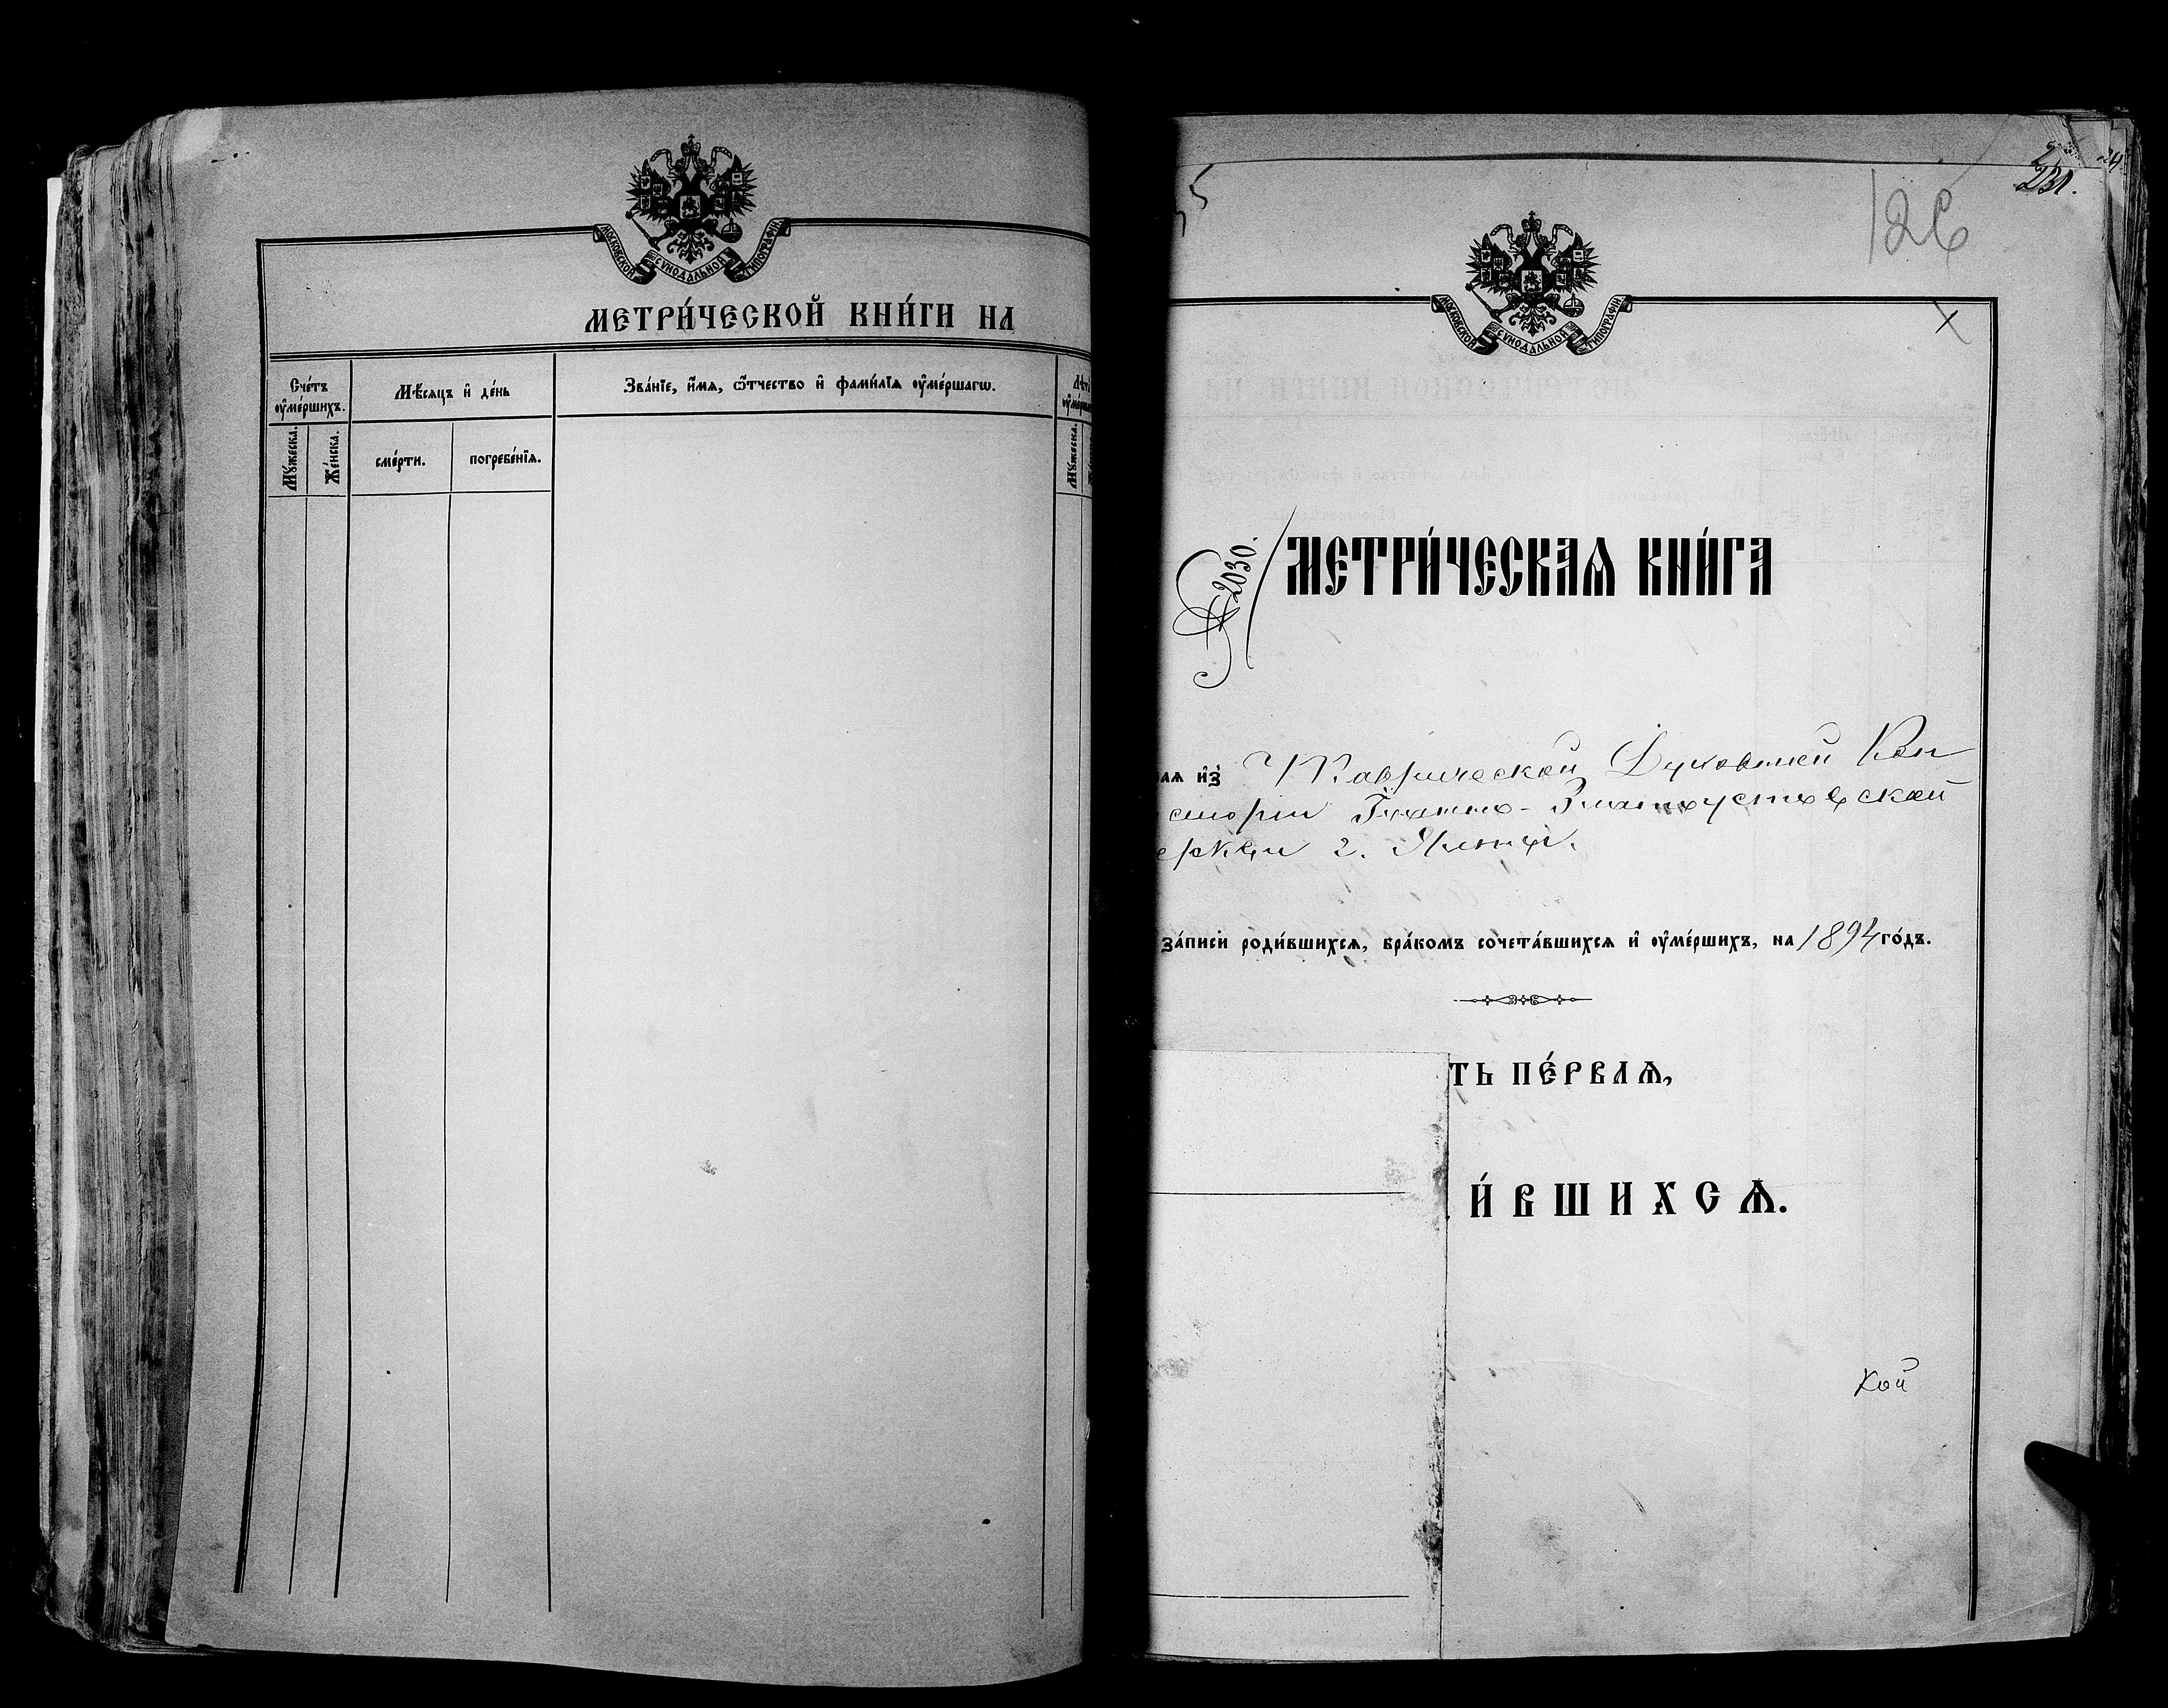 МОСКОВСКОЙ СѴНОДАЛЬНОЙ ТИПОГРАФІИ
МЕТРИ́ЧЕСКОЙ КНИ́ГИ НА
Сче́тъ ᲂу҆ме́ршихъ.
Мѣ́сяцъ и҆ де́нь
Зва́нїе, и҆́мѧ, ѻ҆́тчество и҆ фами́лїѧ ᲂу҆ме́ршагѡ.
Мꙋ́жеска.
Же́нска.
сме́рти.
погребе́нїѧ.
Мꙋ́жеска.
5
231.
126
МОСКОВСКОЙ СѴНОДАЛЬНОЙ ТИПОГРАФІИ
№ 2030.
МЕТРИ́ЧЕСКАѦ КНИ́ГА
аѧ и҆з̾ Таврической Духовной Кон
систоріи Іоанно-Златоустовской
еркви г. Ялты.
за́писи роди́вшихсѧ, бра́комъ сочета́вшихсѧ и҆ ᲂу҆ме́ршихъ, на 1894 го́дъ.
ТЬ ПЕ́РВАѦ,
И́ВШИХСѦ.
кой